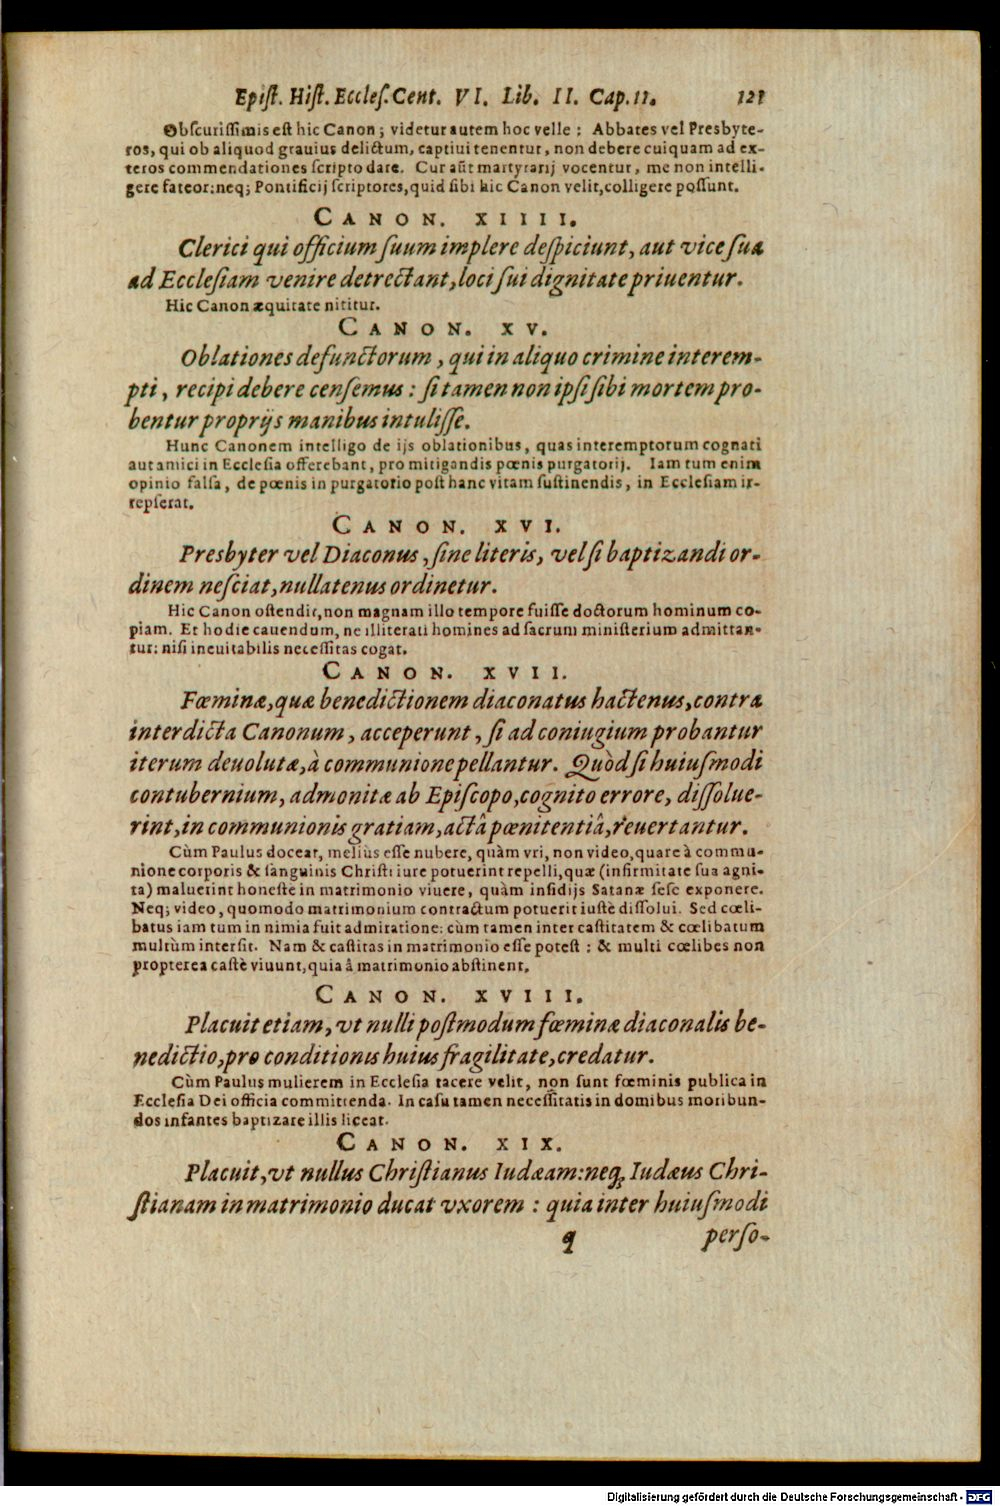 Epiſt. Hiſt. Eccleſ. Cent. VI. Lib. II. Cap. 11. 121
Obſcuriſſimis eſt hic Canon; videtur autem hoc velle: Abbates vel Presbyte-
ros, qui ob aliquod grauius delictum, captiui tenentur, non debere cuiquam ad ex-
teros commendationes ſcripto dare. Cur aūt martyrarij vocentur, me non intelli-
gere fateor: neq; Pontificij ſcriptores, quid ſibi hic Canon velit, colligere poſſunt.
CANON. XIIII.
Clerici qui officium ſuum implere deſpiciunt, aut vice ſua
ad Eccleſiam venire detrectant, loci ſui dignitate priuentur.
Hic Canon æquitate nititur.
CANON. XV.
Oblationes defunctorum, qui in aliquo crimine interem-
pti, recipi debere cenſemus: ſi tamen non ipſi ſibi mortem pro-
bentur proprijs manibus intuliſſe.
Hunc Canonem intelligo de ijs oblationibus, quas interemptorum cognati
aut amici in Eccleſia offerebant, pro mitigandis pœnis purgatorij. Iam tum enim
opinio falſa, de pœnis in purgatorio poſt hanc vitam ſuſtinendis, in Eccleſiam ir-
repſerat.
CANON. XVI.
Presbyter vel Diaconus, ſine literis, vel ſi baptizandi or-
dinem neſciat, nullatenus ordinetur.
Hic Canon oſtendit, non magnam illo tempore fuiſſe doctorum hominum co-
piam. Et hodie cauendum, ne illiterati homines ad ſacrum miniſterium admittan-
tur: niſi ineuitabilis neceſſitas cogat.
CANON. XVII.
Fœminæ, quæ benedictionem diaconatus hactenus, contra
interdicta Canonum, acceperunt, ſi ad coniugium probantur
iterum deuolutæ, à communione pellantur. Quòd ſi huiuſmodi
contubernium, admonitæ ab Epiſcopo, cognito errore, diſſolue-
rint, in communionis gratiam, actâ pœnitentiâ, reuertantur.
Cùm Paulus doceat, meliùs eſſe nubere, quàm vri, non video, quare à commu-
nione corporis & ſanguinis Chriſti iure potuerint repelli, quæ (infirmitate ſua agni-
ta) maluerint honeſte in matrimonio viuere, quàm inſidijs Satanæ ſeſe exponere.
Neq; video, quomodo matrimonium contractum potuerit iuſtè diſſolui. Sed cœli-
batus iam tum in nimia fuit admiratione: cùm tamen inter caſtitatem & cœlibatum
multùm interſit. Nam & caſtitas in matrimonio eſſe poteſt: & multi cœlibes non
propterea caſtè viuunt, quia â matrimonio abſtinent.
CANON. XVIII.
Placuit etiam, vt nulli poſtmodum fœminæ diaconalis be-
nedictio, pro conditionis huius fragilitate, credatur.
Cùm Paulus mulierem in Eccleſia tacere velit, non ſunt fœminis publica in
Eccleſia Dei officia committenda. In caſu tamen neceſſitatis in domibus moribun-
dos infantes baptizare illis liceat.
CANON. XIX.
Placuit, vt nullus Chriſtianus Iudæam: neq; Iudæus Chri-
ſtianam in matrimonio ducat vxorem: quia inter huiuſmodi
q perſo-
Digitalisierung gefördert durch die Deutsche Forschungsgemeinschaft - DFG